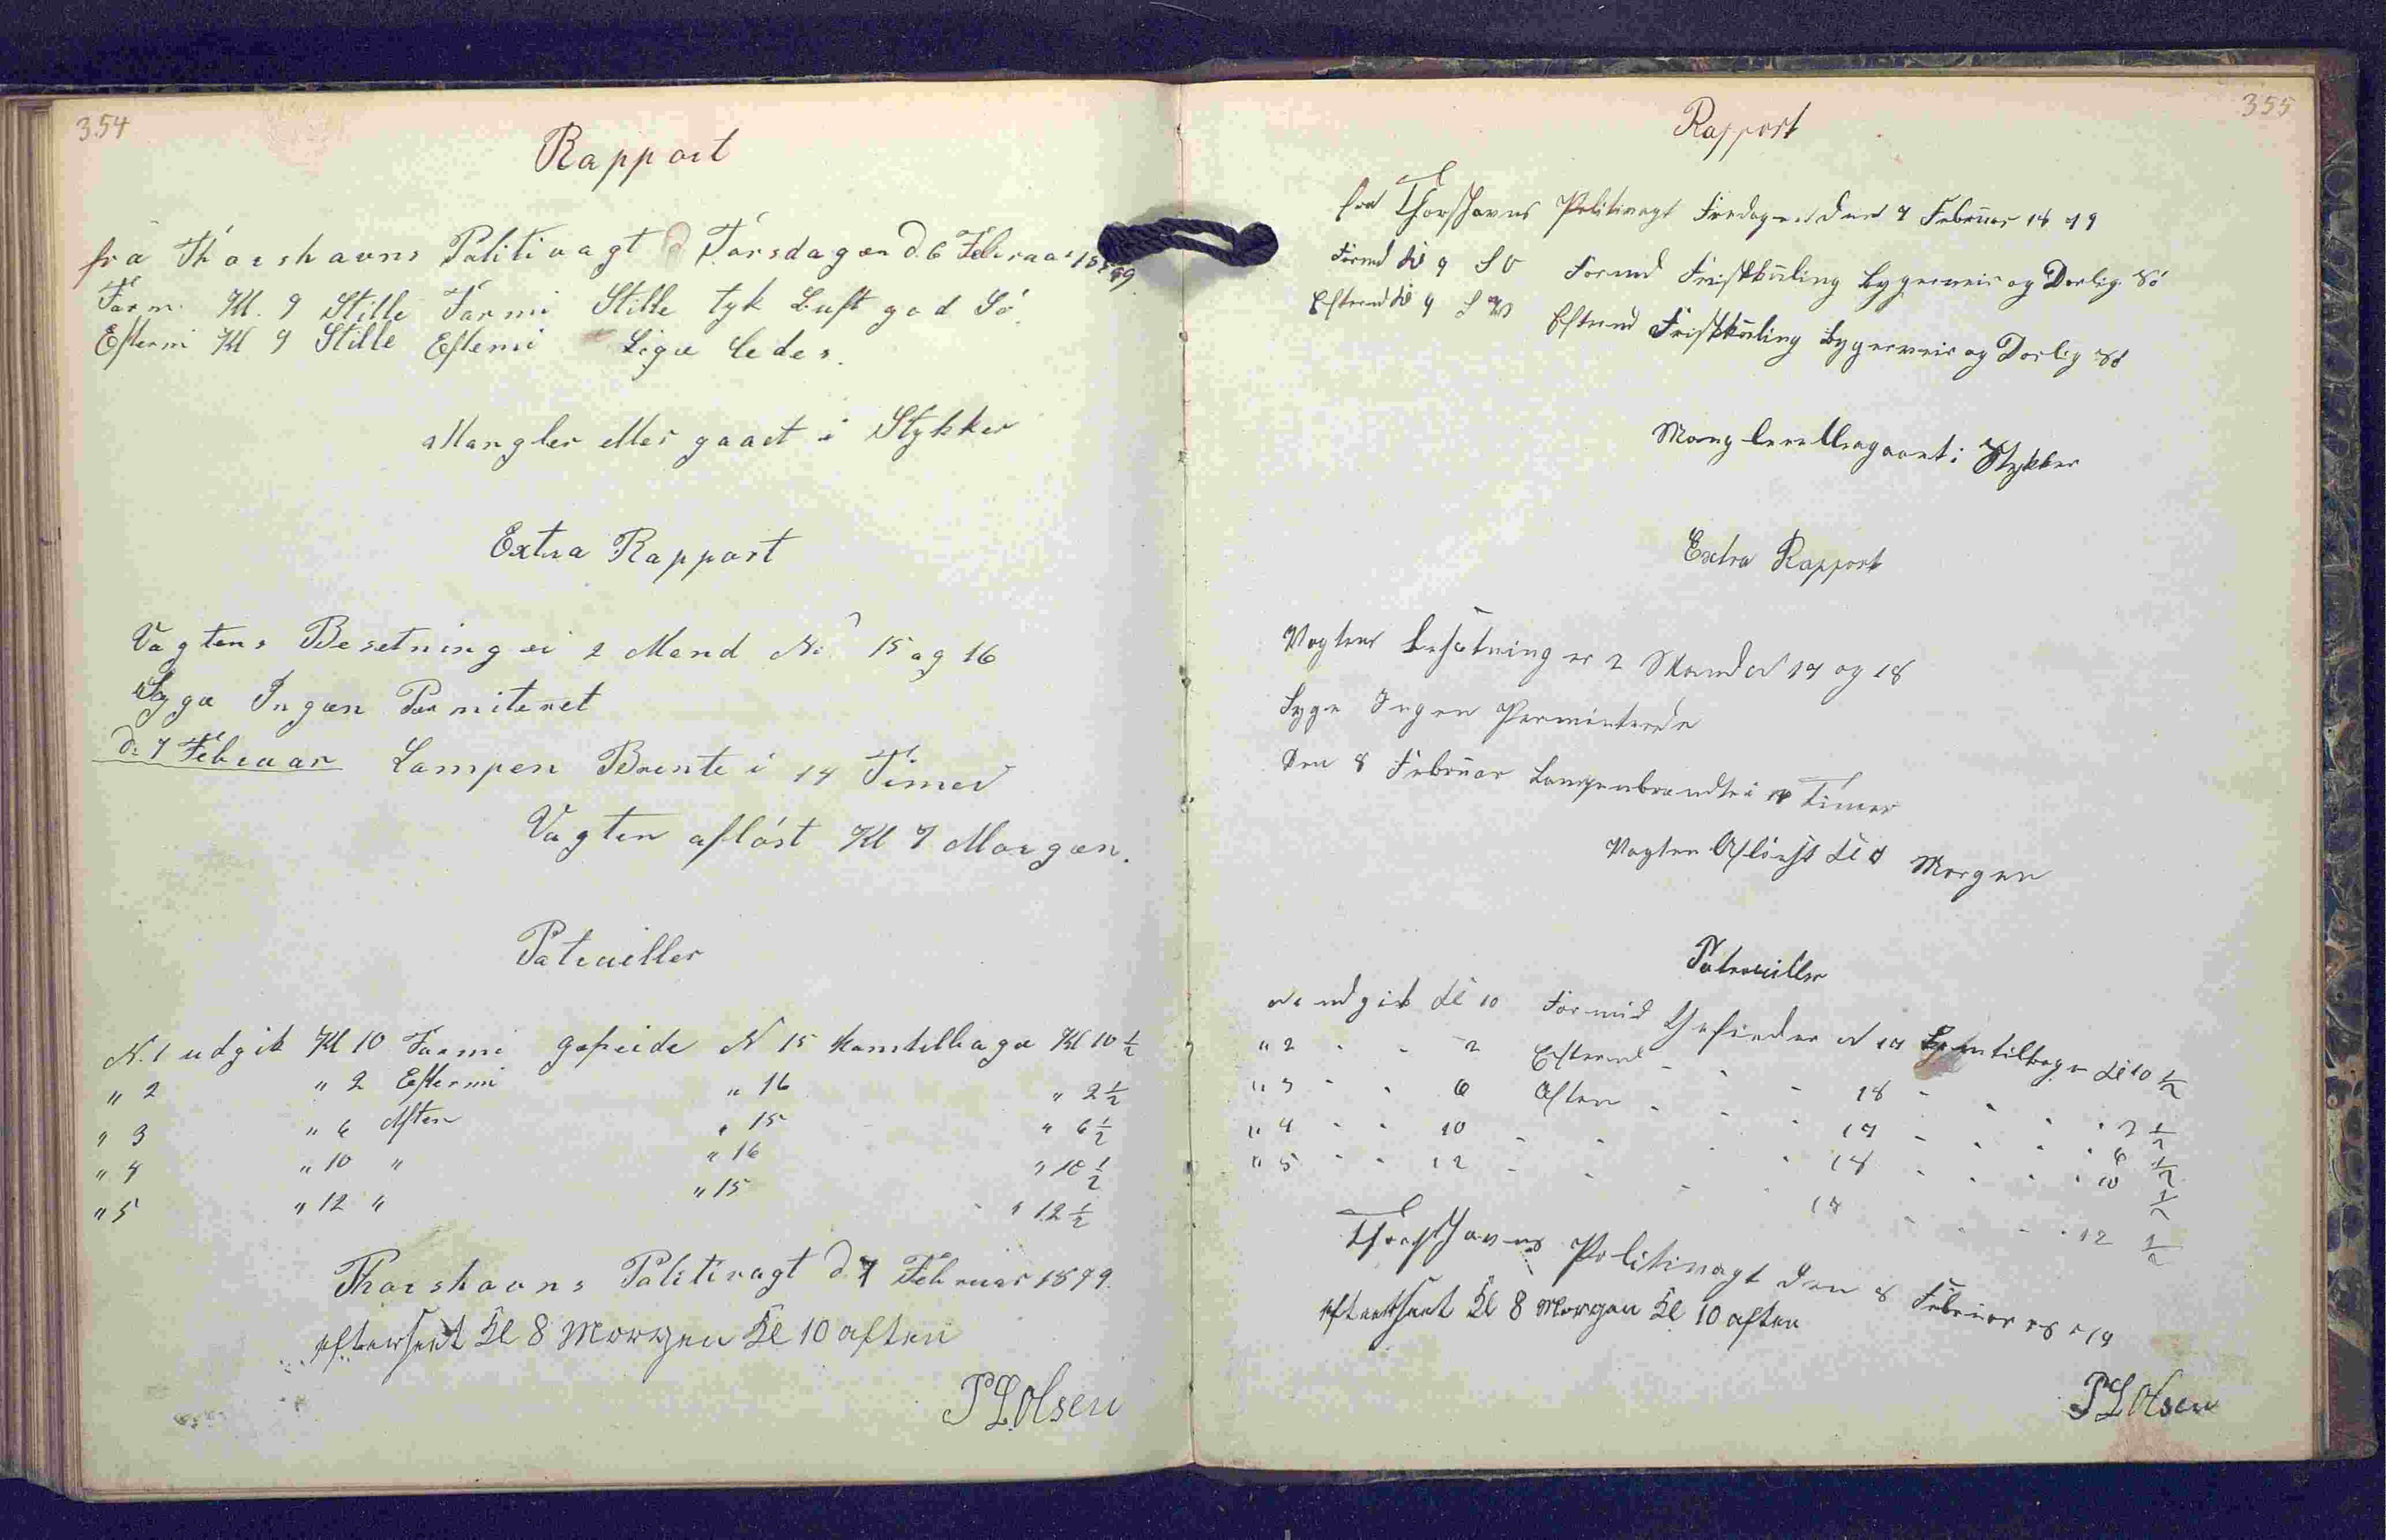 354
Rapport
fra Thorshavns Politivagt d Torsdagen d. 6 Februar 1879
Form. Kl. 9 Stille Formi Stille tyk Luft god Sö
Eftermi Kl 9 Stille Eftemi Lige ledes.
Mangler eller gaaet i Stykker
Extra Rapport
Vagtens Besetning er 2 Mand No 15 og 16
Syge Ingen Permiteret
d. 7 Februar Lampen Brente i 14 Timer
Vagten aflöst Kl 7 Morgen.
Patrouiller
N. 1 udgik Kl 10 Formi gefreide N 15 kom tilbage Kl 10 1/2
" 2 " 2 Eftermi " 16 " 2 1/2
" 3 " 6 Aften " 15 " 6 1/2
" 4 " 10 " " 16 " 10 1/2
" 5 " 12 " " 15 " 12 1/2
Thorshavns Politivagt d. 7 Februar 1879.
efterseet Kl 8 Morgen Kl 10 aften
P L Olsen
355
Rapport
fra Thorshavns Politivagt Fredagen den 7 Februar 1879
Formd Kl 9 S O Formd Friskkuling bygerveir og Dorlig Sö
Eftermd Kl 9 S W Eftermd Friskkuling bygerveir og Dorlig Sö
Mangler eller gaaet i Stykker
Extra Rapport
Vagtens besætning er 2 Mand N 17 og 18
Syge Ingen Perminterede
Den 8 Februar Lampen brændte i 14 Timer
Vagten Aflöst Kl Morgen
Patrouiller
N 1 udgik Kl 10 Formid Gefreider N 17 kom tilbage Kl 10 1/2
" 2 " " 2 Eftermd " " 18 " " " 2 1/2
" 3 " " 6 Aften " " 17 " " " 6 1/2
" 4 " " 10 " " " 18 " " " 10 1/2
" 5 " " 12 " " " 17 " " " 12 1/2
Thorshavns Politivagt Den 8 Februar 1879
efterseet Kl 8 Morgen Kl 10 aften
P L Olsen